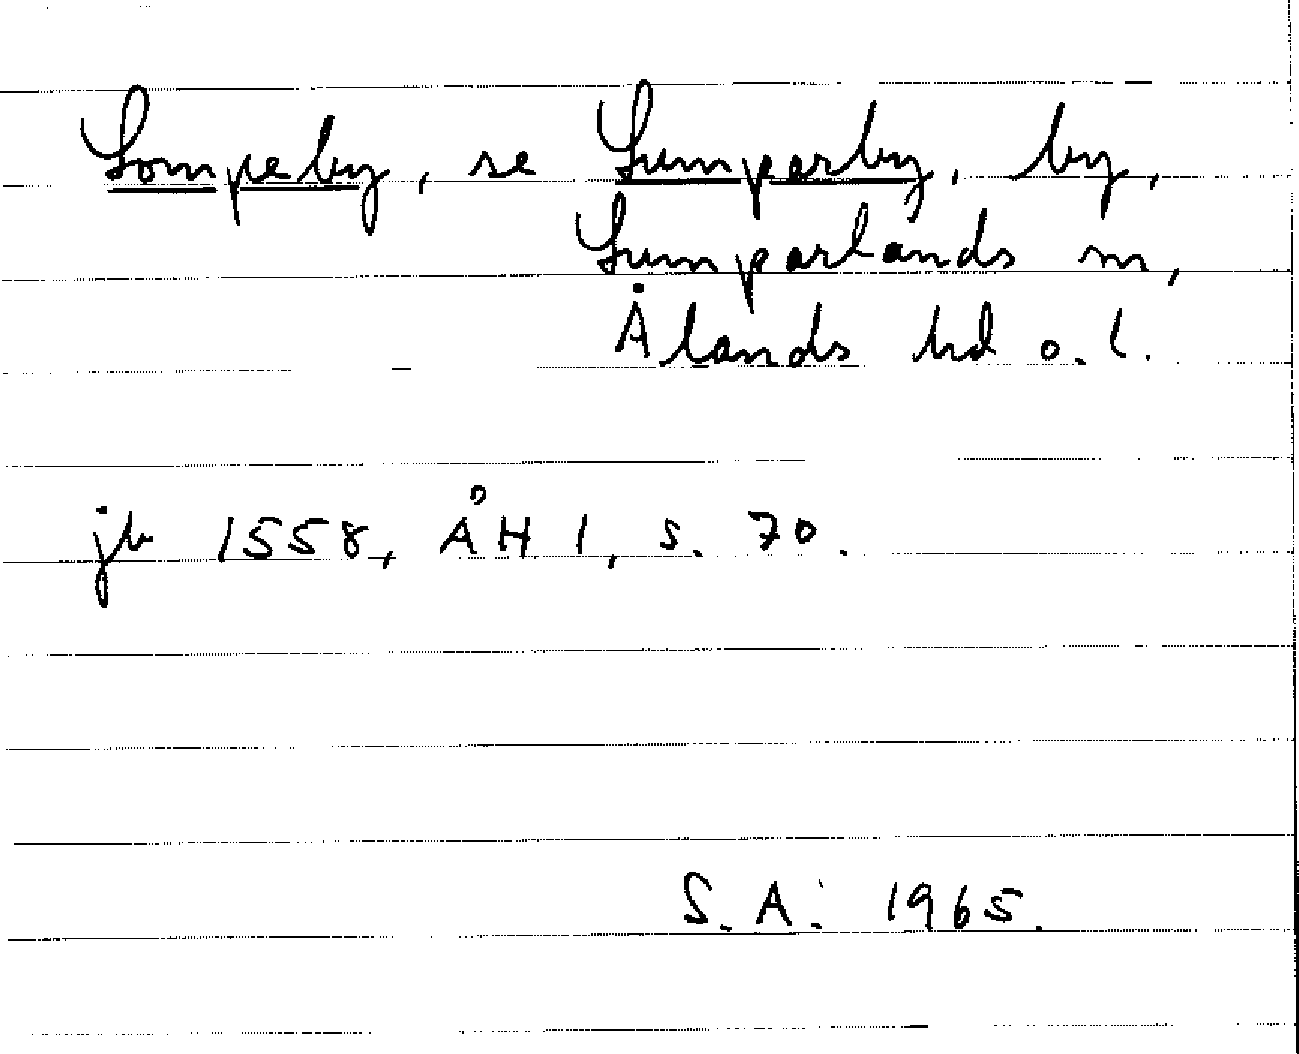 Lompeby, se Lumparby, by,
Lumparlands sn,
Ålands hd o. l.
jb 1558, ÅH 1, s. 70.
S. A. 1965.